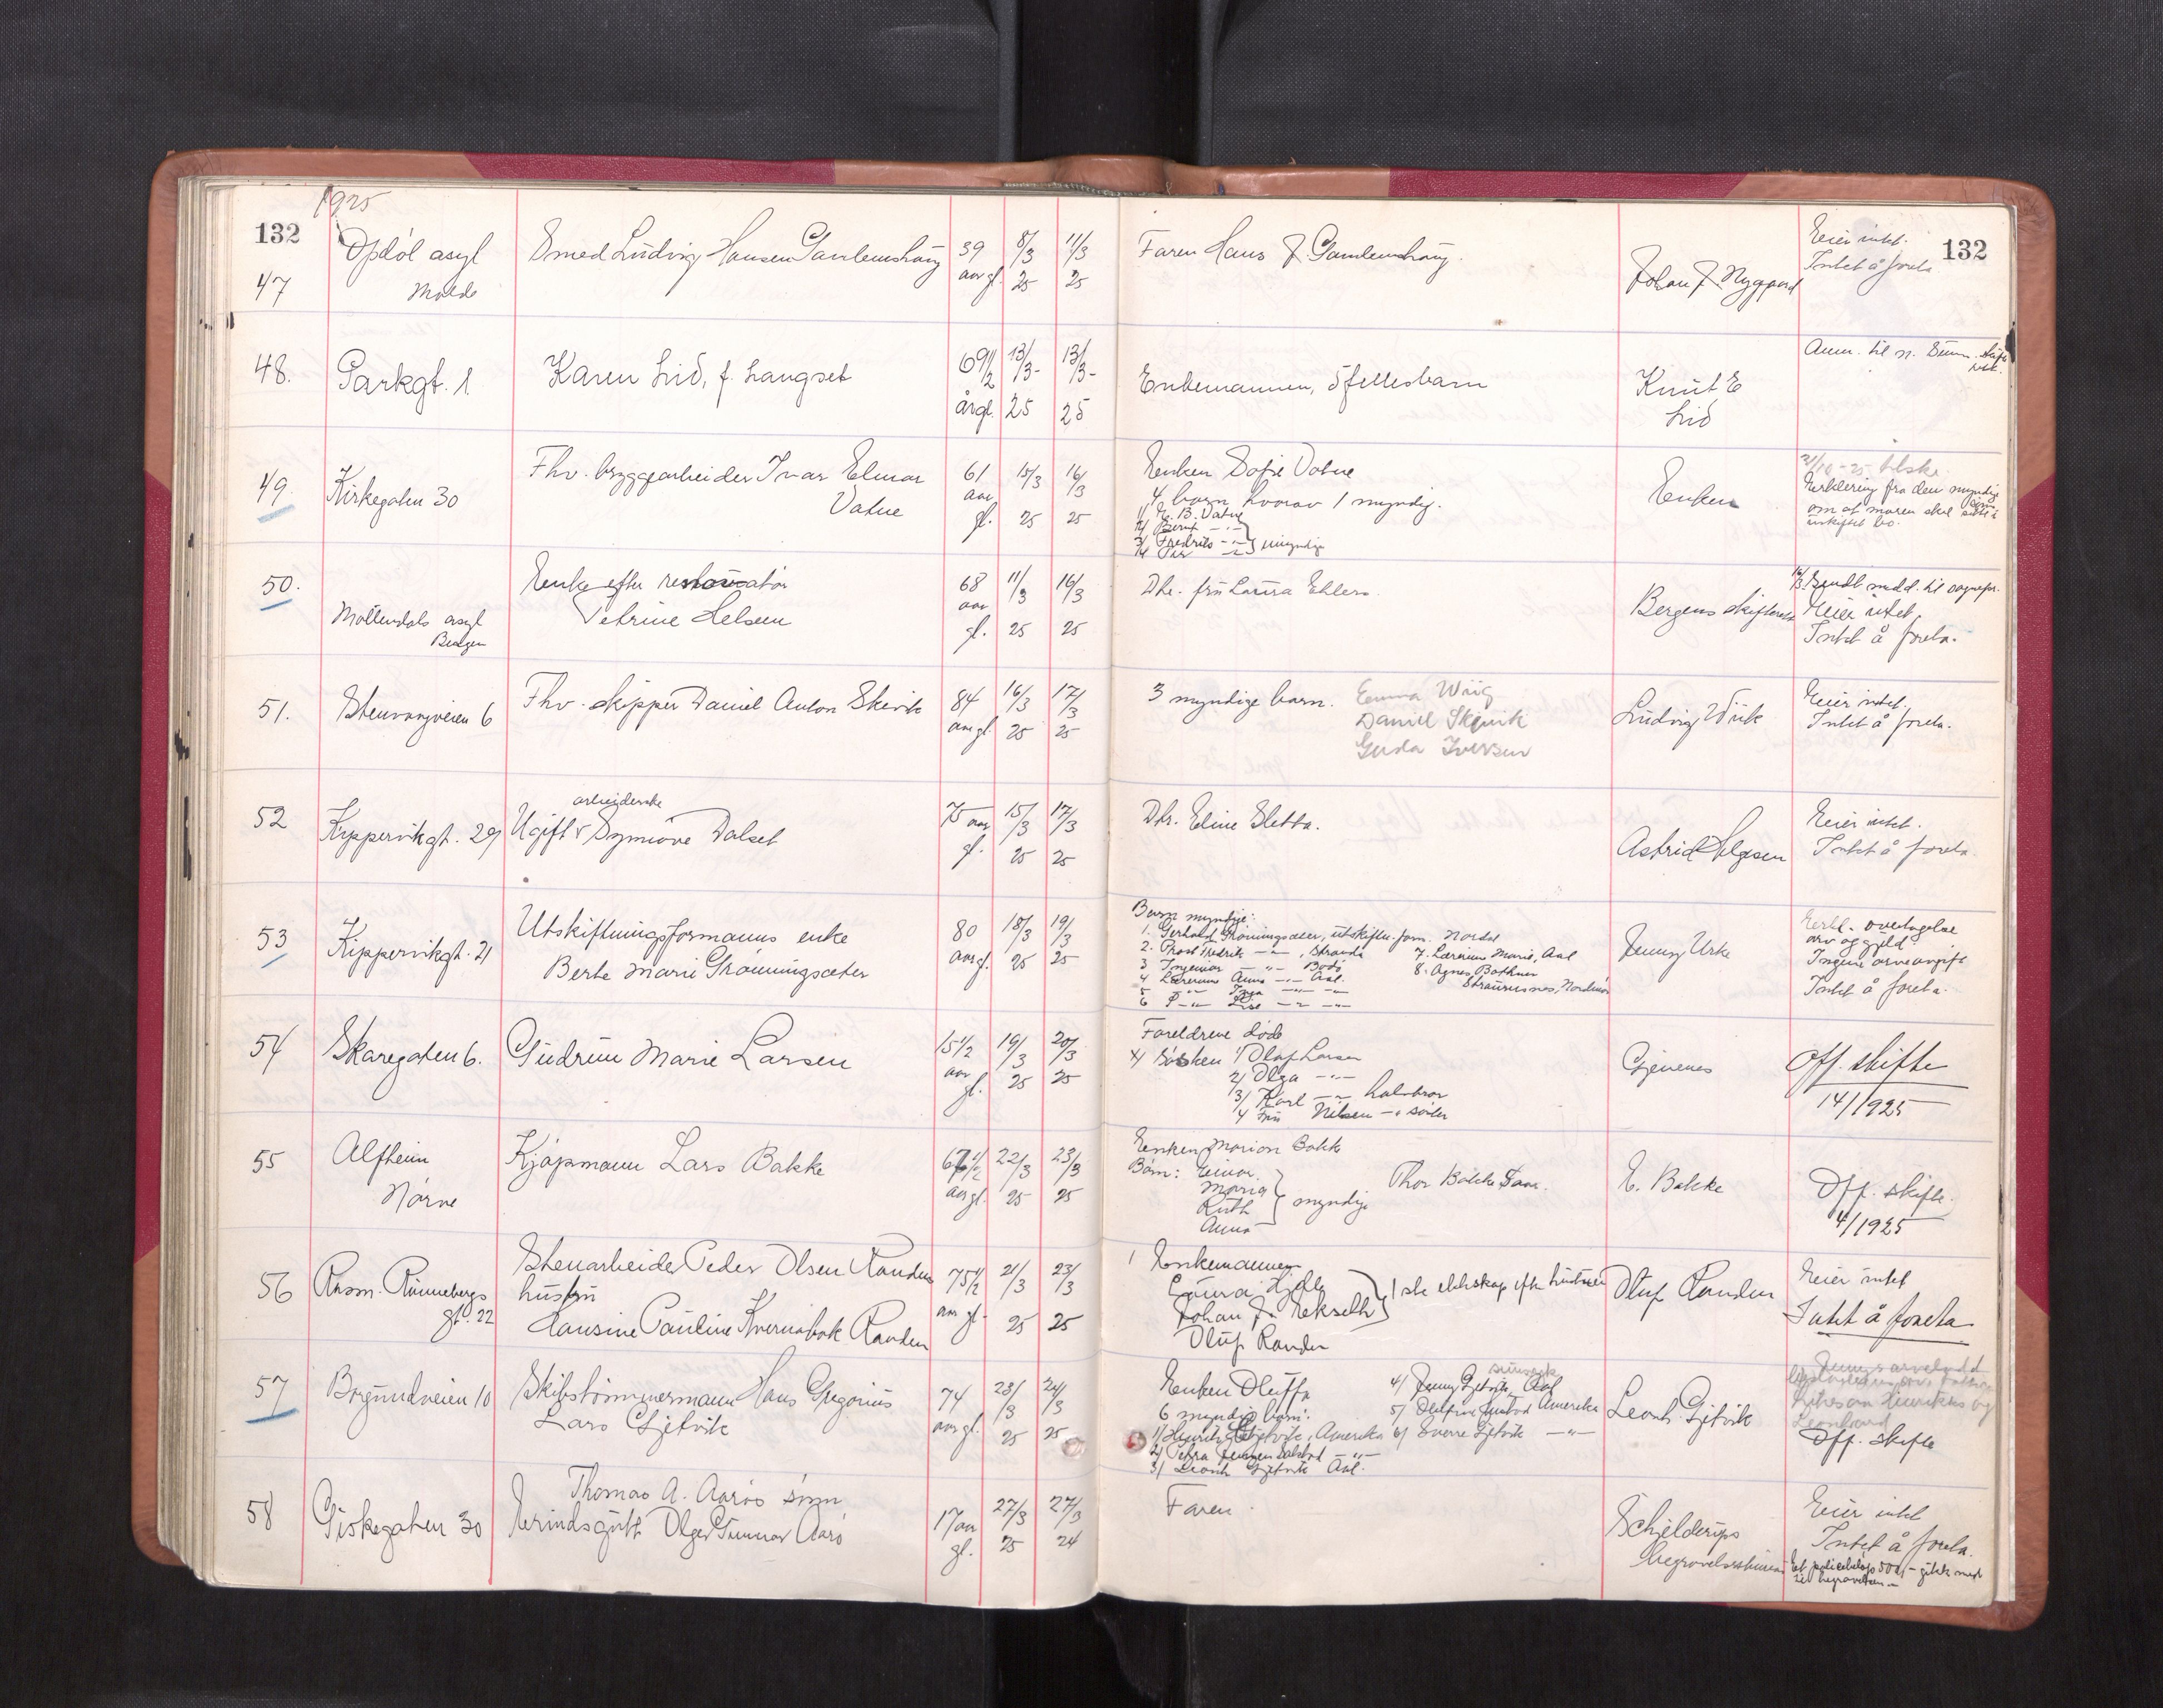 1925
132
132
47
Opdøl asyl
Molde
Smed Ludvig Hansen Gamlemshaug
39
aar gl.
8/3
25
11/3
25
Faren Hans J. Gamlemshaug.
Johan J. Nygaard
Eier intet.
Intet å foreta
48.
Parkgt. 1.
Karen Lid, f. Langset
69 1/2
årgl.
13/3-
25
13/3-
25
Enkemannen, 5 fellesbarn
Knut E
Lid
Anm. til n. Sunm. skifte
49.
Kirkegaten 30
Fhv. bryggearbeider Ivar Elmar
Vatne
61
aar
gl.
15/3
25
16/3
25
Enken Sofie Vatne
4 barn hvorav 1 myndig.
Vatne
3/ Fredrik -"-
umyndige
Enken
21/10-25 tilskr.
Erklering fra den myndige
om at moren skal sitte i
uskiftet bo.
50.
Møllendals asyl
Bergen
Enke efter restauratør
Petrine Helsen
68
aar
gl.
11/3
25
16/3
25
Dtr. fru Laura Ehlers.
Bergens skifterett
Eier intet.
Intet å foreta.
51.
Stenvaagveien 6
Fhv. skipper Daniel Anton Skevik
84
aar gl
16/3
25
17/3
25
3 myndige barn. Emma Wiig
Daniel Skjevik
Gerda Iversen
Ludvig Wiik
Eier intet.
Intet å foreta.
52
Kippervikgt. 29
arbeiderske
Ugift v Synnøve Dalset
75 aar
gl.
15/3
25
17/3
25
Dtr. Eline Sletta.
Astrid Helgesen
Eier intet.
Intet å foreta.
53
Kippervikgt. 21
Utskiftningsformanns enke
Berte Marie Grønningsæter
80
aar gl.
18/3
25
19/3
25
Barn myndige:
1. Gerhard Grønningsæter, utskiftn.form. Nordal
2. Prost Fredrik -"-, Stranda
7. Lærerinne Marie, Aal
3 Ingeniør -"- Bodø
8. Agnes Bothner
4 Lærerinne Anna -"- Aal.
Nordmøre
5 -"- Inga -"- -"-
Jenny Urke
Erkl. overtagelse
arv og gjeld.
Ingen arveavgift
Intet å foreta.
54
Skaregaten 6.
Gudrun Marie Larsen
15 1/2
aar
gl.
19/3
25
20/3
25
Foreldrene døde
4/ Søsken 1/ Olaf Larsen
2/ Olga -"-
3/ Karl -"- halvbror
4 Fru Nilsen -"- søster
Gjevenes
Off. skifte
14/1925
55
Alfheim
Nørve
Kjøpmann Lars Bakke
67 1/2
aar gl.
22/3
25
23/3
25
Enken Marion Bakke
Barn: Einar
Maria
Ruth
Anna
myndige
Thor Bakke
E. Bakke
Off. skifte.
4/1925
56
Rasm. Rønnebergs
gt. 22
Stenarbeider Peder Olsen Randens
hustru
Hansine Pauline Kvernabak Randen
75 1/2
aar gl.
21/3
25
23/3
25
1 Enkemannen
Laura
Johan J. Ekseth
1ste ekteskap efter hustruen
Oluf Randen
Oluf Randen
Eier intet
Intet å foreta
57
Borgundveien 10
Skibstømmermann Hans Gregorius
Lars Gjetvik
74
aar gl.
23/3
25
24/3
25
Enken Oluffa
6 myndige barn:
1/ Henrik Gjetvik, Amerika
2/ Petra
3/ Leonh Gjetvik Aal.
4/ Jenny Gjetvik, Aal
Amerika
6/ Sverre Gjetvik -"-
Leonh. Gjetvik
Leonhard
Off. skifte
58
Giskegaten 30
Thomas A. Aarøs sønn
Erindsgutt Olger Gunnar Aarø
17 aar
gl.
27/3
25
27/3
24
Faren.
Schjelderups
begravelsesbureau
Eier intet
Intet å foreta.
Et polisebeløp 500,- gikk med
til begravelsen.-